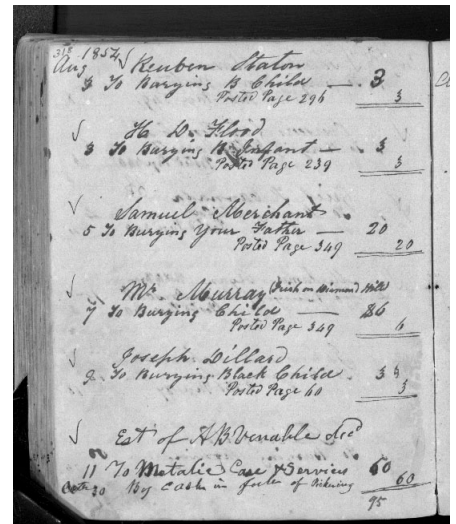 318 1854
Aug Reuben Staton
3 To Burying B Child — 3
Posted Page 296 3
H. D. Flood
3 To Burying B Infant — 3
Posted Page 239 3
Samuel Merchant
5 To Burying Your Father — 20
Posted Page 349 20
Mr. Murray (Irish on Diamond Hill)
7 To Burying Child — 6
Posted Page 349 6
Joseph Dillard
9 To Burying Black Child 3
Posted Page 60 3
Est of A. B. Venable Decd
11 To Metalic Case & Services 60
Octr 30 By Cash in full of 60
95